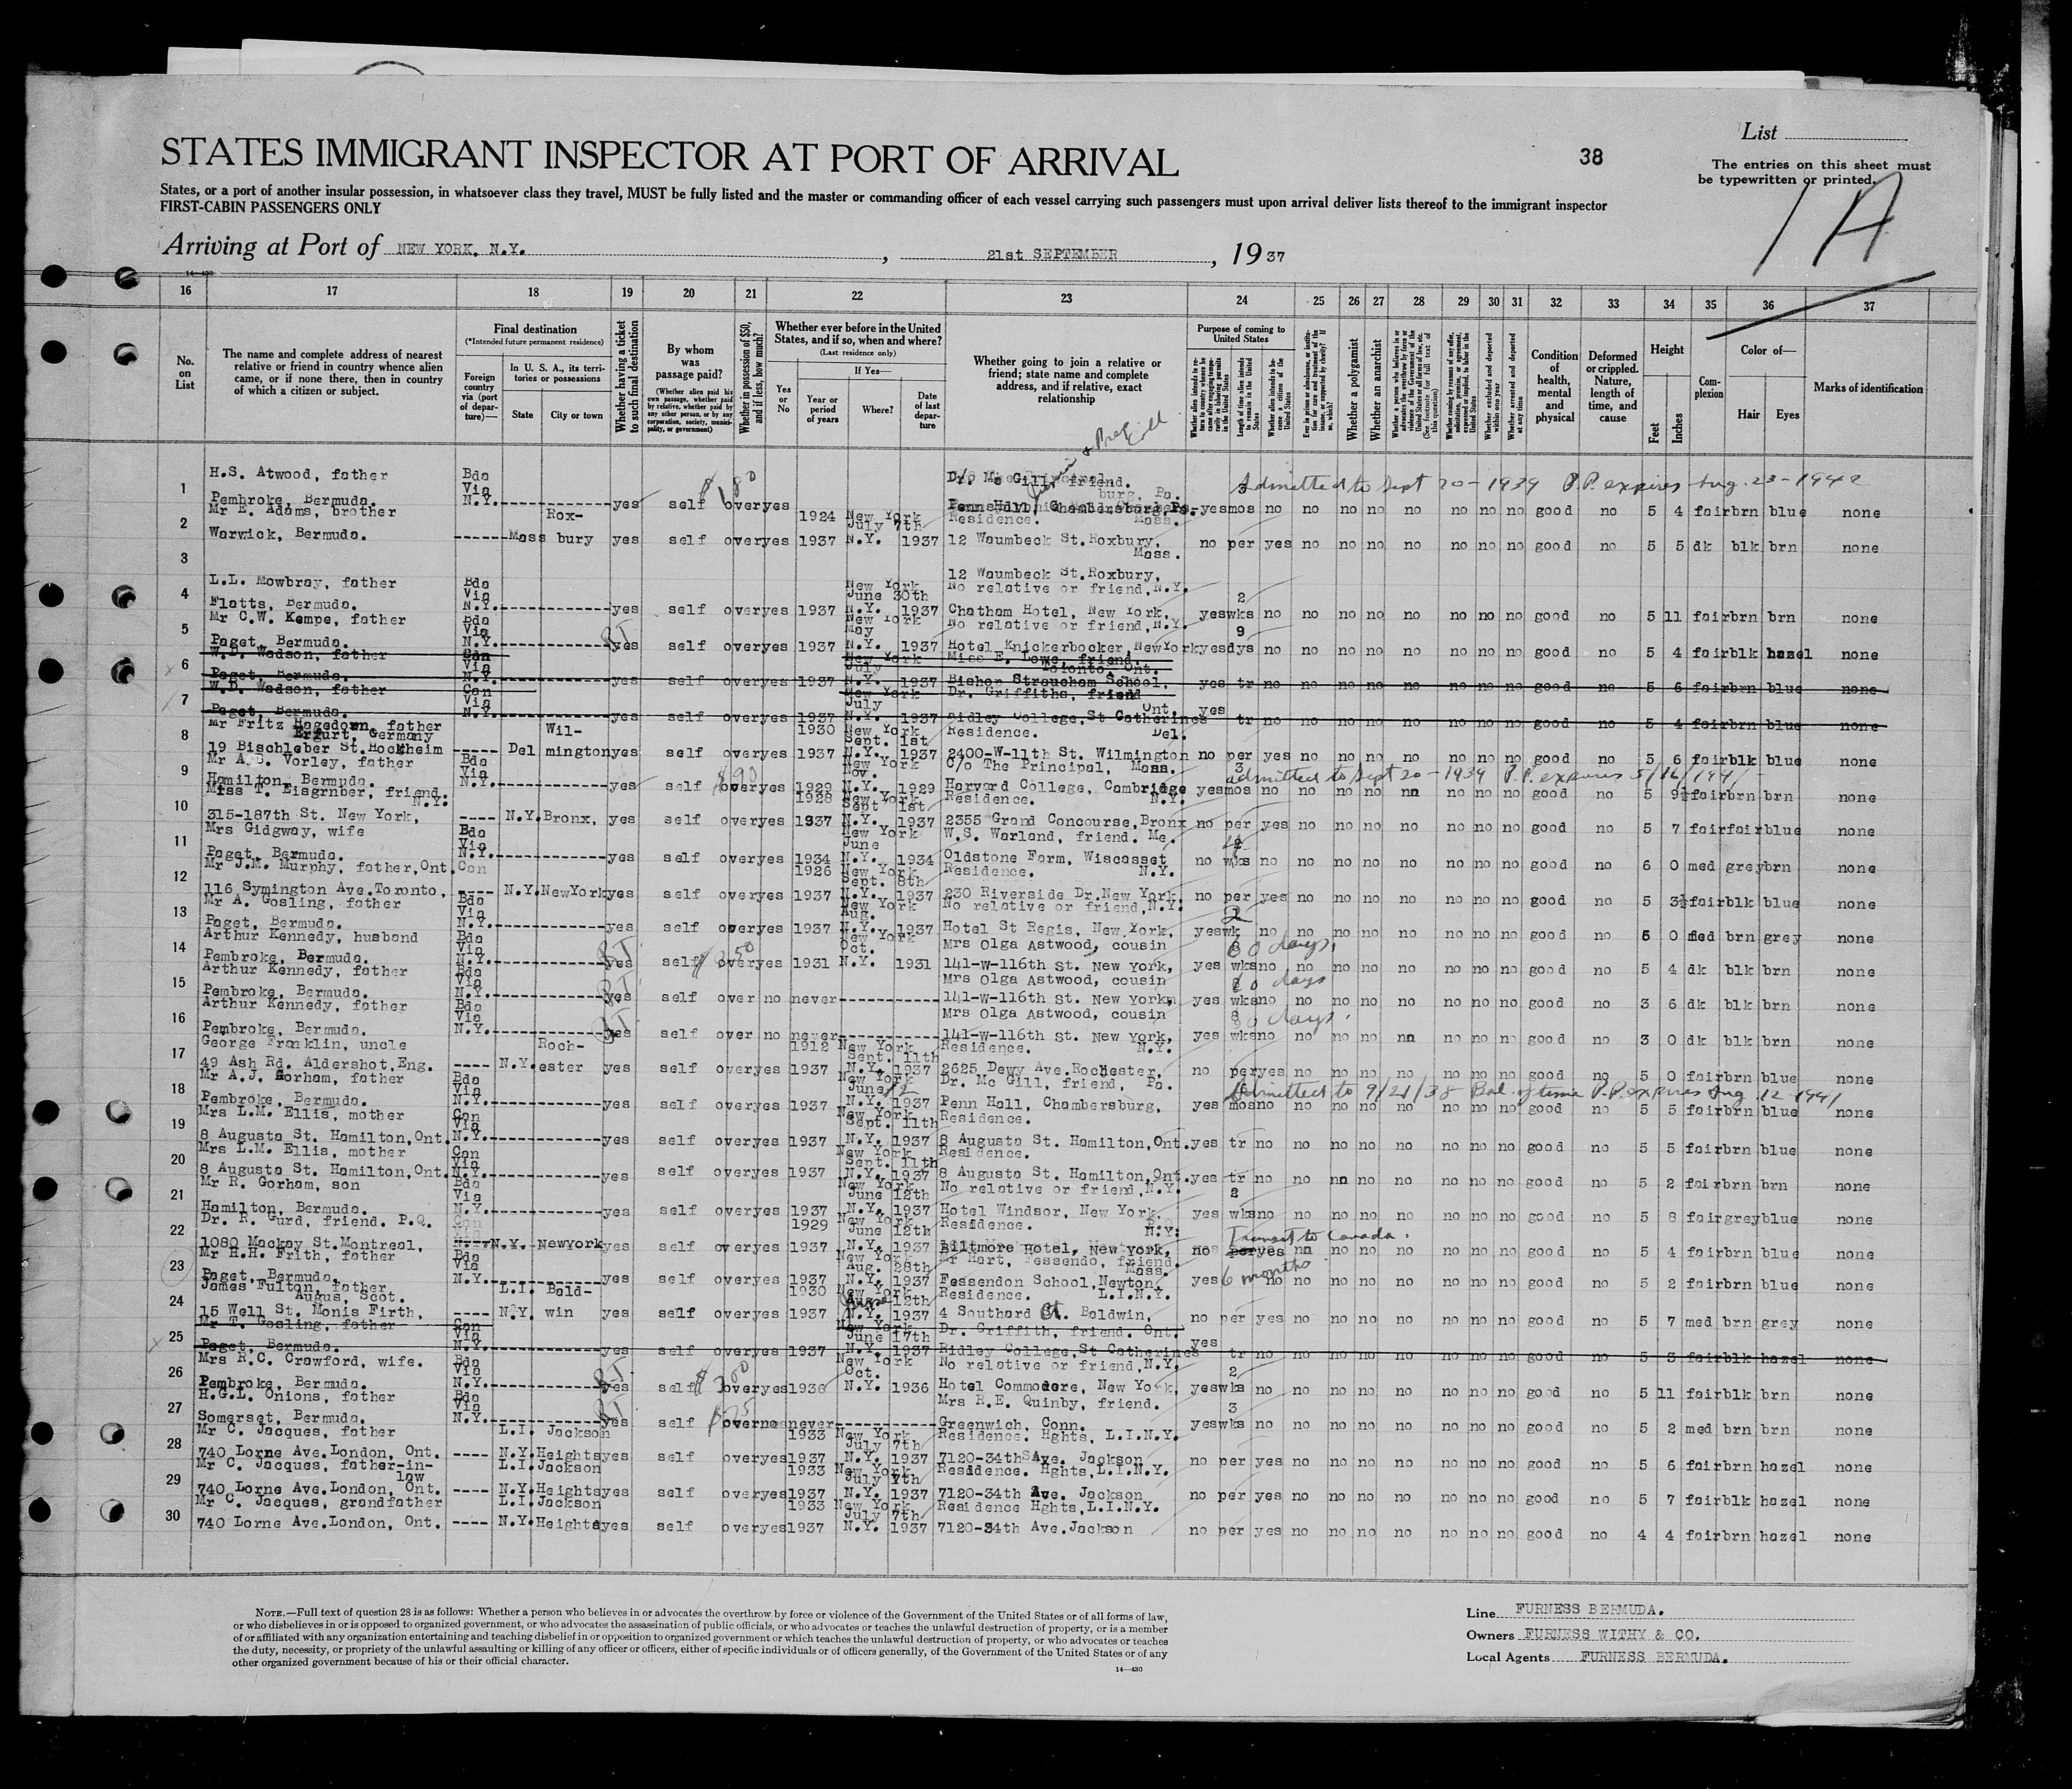 List
38
The entries on this sheet must
be typewritten or printed.
1A
STATES IMMIGRANT INSPECTOR AT PORT OF ARRIVAL
States, or a port of another insular possession, in whatsoever class they travel, MUST be fully listed and the master or commanding officer of each vessel carrying such passengers must upon arrival deliver lists thereof to the immigrant inspector
FIRST-CABIN PASSENGERS ONLY
Arriving at Port of NEW YORK, N.Y. , 21st SEPTEMBER , 1937
14—430
16 17 18 19 20 21 22 23 24 25 26 27 28 29 30 31 32 33 34 35 36 37
No. on List
The name and complete address of nearest relative or friend in country whence alien came, or if none there, then in country of which a citizen or subject.
Final destination
(*Intended future permanent residence)
Foreign country via (port of departure)—
In U. S. A., its territories or possessions
State City or town
Whether having a ticket to such final destination
By whom was passage paid?
(Whether alien paid his own passage, whether paid by relative, whether paid by any other person, or by any corporation, society, municipality, or government)
Whether in possession of $50, and if less, how much?
Whether ever before in the United States, and if so, when and where?
(Last residence only)
Yes or No
If Yes—
Year or period of years
Where?
Date of last departure
Whether going to join a relative or friend; state name and complete address, and if relative, exact relationship
Purpose of coming to United States
Whether a polygamist
Whether an anarchist
Condition of health, mental and physical
Deformed or crippled. Nature, length of time, and cause
Height
Feet Inches
Complexion
Color of—
Hair Eyes
Marks of identification
1 H.S. Atwood, father Bda Via N.Y. yes self $180 over yes friend. Admitted to Sept 20-1939 P.P. expires Aug. 23-1942
Pembroke, Bermuda. yes mos no no no no no no no no good no 5 4 fair brn blue none
2 Mr E. Adams, brother Rox- 1924 New York July 7th Residence. Mass.
Warwick, Bermuda. Mass bury yes self over yes 1937 N.Y. 1937 12 Waumbeck St. Roxbury, Mass. no per yes no no no no no no no good no 5 5 dk blk brn none
3 12 Waumbeck St. Roxbury,
4 L.L. Mowbray, father Bda Via New York June 30th No relative or friend, N.Y. 2
Flatts, Bermuda. N.Y. yes self over yes 1937 N.Y. 1937 Chatham Hotel, New York. yes wks no no no no no no no no good no 5 11 fair brn brn none
5 Mr C.W. Kempe, father Bda Via RT New York May No relative or friend, N.Y. 9
Paget, Bermuda. N.Y. yes self over yes 1937 N.Y. 1937 Hotel Knickerbocker, New York yes dys no no no no no no no no good no 5 4 fair blk hazel none
6 W.D. Wadson, father Can Via New York July Miss E. Lowe, friend. Toronto, Ont.
Paget, Bermuda. N.Y. yes self over yes 1937 N.Y. 1937 Bishop Strachan School, yes tr no no no no no no no no good no 5 6 fair brn blue none
7 W.D. Wadson, father Can Via New York July Dr. Griffiths, friend Ont.
Paget, Bermuda. N.Y. yes self over yes 1937 N.Y. 1937 Ridley College, St Catherines yes tr no no no no no no no no good no 5 4 fair brn blue none
8 Mr Fritz Hagedorn, father Erfurt, Germany Wil- 1930 New York Sept. 1st Residence. Del.
19 Bischleber St. Hockheim Del mington yes self over yes 1937 N.Y. 1937 2400-W-11th St. Wilmington no per yes no no no no no no no good no 5 6 fair blk blue none
9 Mr A.B. Vorley, father Bda Via $90 New York Nov. C/o The Principal, Mass. 3 admitted to Sept 20-1939 P.P. expires 5/16/1941
Hamilton, Bermuda. N.Y. yes self over yes 1929 N.Y. 1929 Harvard College, Cambridge yes mos no no no no no no no no good no 5 9½ fair brn brn none
10 Miss T. Eisgrnber, friend. N.Y. 1928 New York Sept 1st Residence. N.Y.
315-187th St. New York, N.Y. Bronx, yes self over yes 1937 N.Y. 1937 2355 Grand Concourse, Bronx no per yes no no no no no no no good no 5 7 fair fair blue none
11 Mrs Gidgway, wife Bda Via New York June W.S. Warland, friend. Me.
Paget, Bermuda. N.Y. yes self over yes 1934 N.Y. 1934 Oldstone Farm, Wiscasset no wks no no no no no no no no good no 6 0 med grey brn none
12 Mr J.M. Murphy, father, Ont. Can 1926 New York Sept. 8th Residence. N.Y.
116 Symington Ave. Toronto, N.Y. New York yes self over yes 1937 N.Y. 1937 230 Riverside Dr. New York, no per yes no no no no no no no good no 5 3½ fair blk blue none
13 Mr A. Gosling, father Bda Via New York Aug. No relative or friend, N.Y. 2
Paget, Bermuda. N.Y. yes self over yes 1937 N.Y. 1937 Hotel St Regis, New York, yes wk no no no no no no no no good no 6 0 med brn grey none
14 Arthur Kennedy, husband Bda Via RT New York Oct. Mrs Olga Astwood, cousin 60 days.
Pembroke, Bermuda. N.Y. yes self over yes 1931 N.Y. 1931 141-W-116th St. New York, yes wks no no no no no no no no good no 5 4 dk blk brn none
15 Arthur Kennedy, father Bda Via RT Mrs Olga Astwood, cousin 60 days
Pembroke, Bermuda. N.Y. yes self over no never 141-W-116th St. New York, yes wks no no no no no no no no good no 3 6 dk blk brn none
16 Arthur Kennedy, father Bda Via RT Mrs Olga Astwood, cousin 60 days.
Pembroke, Bermuda. N.Y. yes self over no never 141-W-116th St. New York, yes wks no no no no no no no no good no 3 0 dk blk brn none
17 George Franklin, uncle Roch- 1912 New York Sept. 11th Residence. N.Y.
49 Ash Rd. Aldershot, Eng. N.Y. ester yes self over yes 1937 N.Y. 1937 2625 Dewy Ave. Rochester, no per yes no no no no no no no good no 5 0 fair brn blue none
18 Mr A.J. Gorham, father Bda Via New York June 12 Dr. Mc Gill, friend, Pa. Admitted to 9/21/38 Bal. of term P.P. expires Aug 12-1941
Pembroke, Bermuda. N.Y. yes self over yes 1937 N.Y. 1937 Penn Hall, Chambersburg, yes mos no no no no no no no no good no 5 5 fair brn blue none
19 Mrs L.M. Ellis, mother Can Via New York Sept. 11th Residence.
8 Augusta St. Hamilton, Ont. N.Y. yes self over yes 1937 N.Y. 1937 8 Augusta St. Hamilton, Ont. yes tr no no no no no no no no good no 5 5 fair brn blue none
20 Mrs L.M. Ellis, mother Can Via New York Sept. 11th Residence.
8 Augusta St. Hamilton, Ont. N.Y. yes self over yes 1937 N.Y. 1937 8 Augusta St. Hamilton, Ont. yes tr no no no no no no no no good no 5 2 fair brn brn none
21 Mr R. Gorham, son Bda Via New York June 12th No relative or friend, N.Y. 2
Hamilton, Bermuda. N.Y. yes self over yes 1937 N.Y. 1937 Hotel Windsor, New York. yes wks no no no no no no no no good no 5 8 fair grey blue none
22 Dr. R. Gurd, friend. P.Q. Can 1929 New York June 12th Residence. N.Y. Transit to Canada.
1080 Mackay St. Montreal, N.Y. New York yes self over yes 1937 N.Y. 1937 Biltmore Hotel, New York, no per yes no no no no no no no good no 5 4 fair brn blue none
23 Mr H.H. Frith, father Bda Via New York Aug. 28th Mr Hart, Fessendo, friend. Mass. 6 months
Paget, Bermuda. N.Y. yes self over yes 1937 N.Y. 1937 Fessendon School, Newton. yes no no no no no no no no good no 5 2 fair brn blue none
24 James Fulton, father Augus, Scot. L.I. Bald- 1930 New York 12th Residence. L.I.N.Y.
15 Well St. Monis Firth, N.Y. win yes self over yes 1937 N.Y. 1937 4 Southard St. Baldwin, no per yes no no no no no no no good no 5 7 med brn grey none
25 Mr T. Gosling, father Can Via New York June 17th Dr. Griffith, friend. Ont.
Paget, Bermuda. N.Y. yes self over yes 1937 N.Y. 1937 Ridley College, St Catherines yes tr no no no no no no no no good no 5 3 fair blk hazel none
26 Mrs R.C. Crawford, wife. Bda Via RT $300 New York Oct. No relative or friend, N.Y. 2
Pembroke, Bermuda. N.Y. yes self over yes 1936 N.Y. 1936 Hotel Commodore, New York, yes wks no no no no no no no no good no 5 11 fair blk brn none
27 H.G.L. Onions, father Bda Via RT Mrs R.E. Quinby, friend. 3
Somerset, Bermuda. N.Y. yes self over no never Greenwich, Conn. yes wks no no no no no no no no good no 5 2 med brn brn none
28 Mr C. Jacques, father L.I. Jackson 1933 New York July 7th Residence. Hghts, L.I.N.Y.
740 Lorne Ave. London, Ont. N.Y. Heights yes self over yes 1937 N.Y. 1937 7120-34th Ave. Jackson no per yes no no no no no no no good no 5 6 fair brn hazel none
29 Mr C. Jacques, father-in-law L.I. Jackson 1933 New York July 7th Residence. Hghts, L.I.N.Y.
740 Lorne Ave. London, Ont. N.Y. Heights yes self over yes 1937 N.Y. 1937 7120-34th Ave. Jackson no per yes no no no no no no no good no 5 7 fair blk hazel none
30 Mr C. Jacques, grandfather L.I. Jackson 1933 New York July 7th Residence Hghts, L.I.N.Y.
740 Lorne Ave. London, Ont. N.Y. Heights yes self over yes 1937 N.Y. 1937 7120-34th Ave. Jackson no per yes no no no no no no no good no 4 4 fair brn hazel none
NOTE.—Full text of question 28 is as follows: Whether a person who believes in or advocates the overthrow by force or violence of the Government of the United States or of all forms of law,
or who disbelieves in or is opposed to organized government, or who advocates the assassination of public officials, or who advocates or teaches the unlawful destruction of property, or is a member
of or affiliated with any organization entertaining and teaching disbelief in or opposition to organized government or which teaches the unlawful destruction of property, or who advocates or teaches
the duty, necessity, or propriety of the unlawful assaulting or killing of any officer or officers, either of specific individuals or of officers generally, of the Government of the United States or of any
other organized government because of his or their official character.
14—430
Line FURNESS BERMUDA.
Owners FURNESS WITHY & CO.
Local Agents FURNESS BERMUDA.